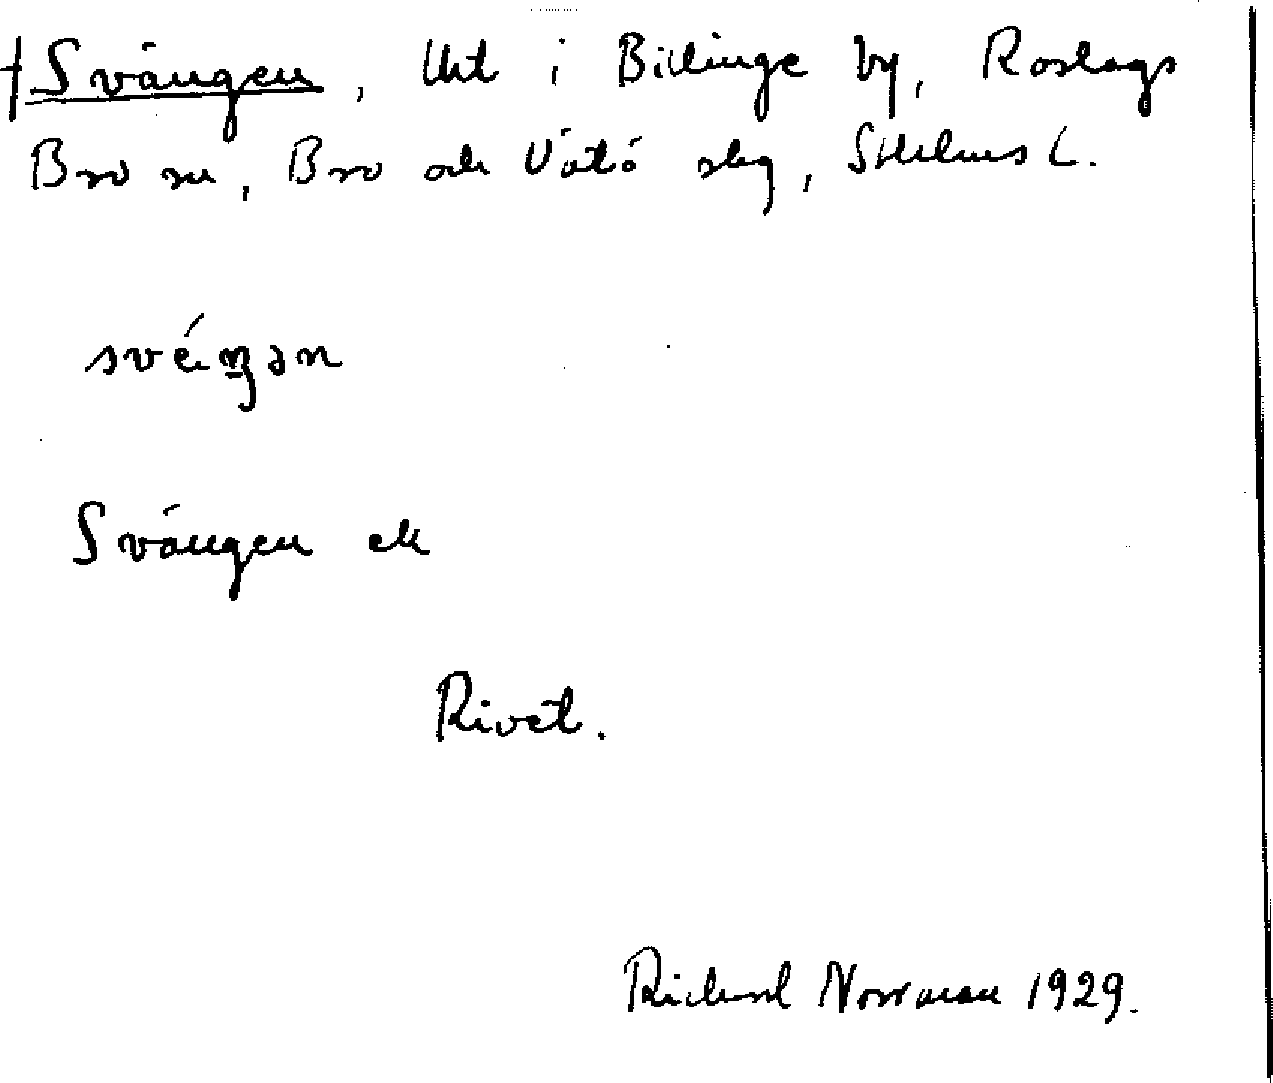 †Svängen, lht i Billinge by, Roslags
Bro sn, Bro och Vätö skg, Sthlms L.
svéŋən
Svängen ck
Rivet.
Richard Norrman 1929.